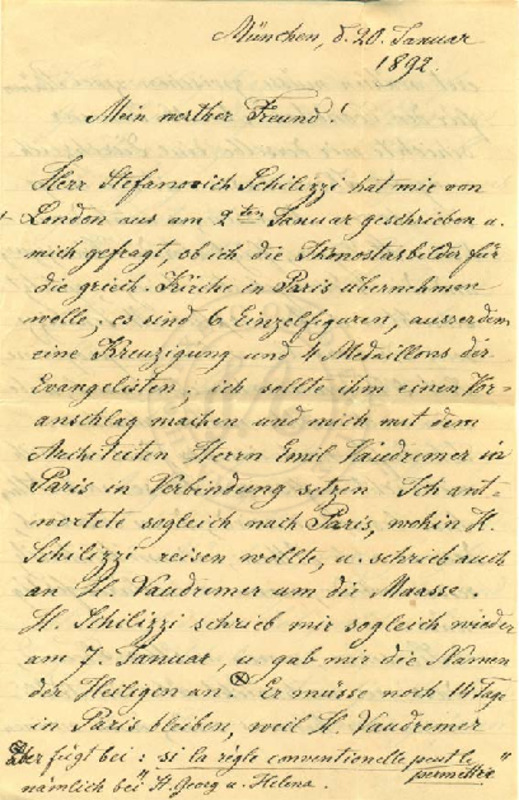 München, d. 20. Januar
1892.
Mein werther Freund!
Herr Stefanovich Schilizzi hat mir von
+ London aus am 2ten Januar geschrieben u.
mich gefragt, ob ich die Ikonostasbilder für
die griech. Kirche in Paris übernehmen
wolle; es sind 6 Einzelfiguren, ausserdem
eine Kreuzigung und 4 Medaillons der
Evangelisten; ich sollte ihm einen Vor=
anschlag machen und mich mit dem
Architecten Herrn Emil Vaudremer in
Paris in Verbindung setzen. Ich ant=
wortete sogleich nach Paris, wohin H.
Schilizzi reisen wollte, u. schrieb auch
an H. Vaudremer um die Maasse.
H. Schilizzi schrieb mir sogleich wieder
am 7. Januar, u. gab mir die Namen
der Heiligen an. ⊗ Er müsse noch 14 Tage
in Paris bleiben, weil H. Vaudremer
⊗ Aber fügt bei: si la règle conventionelle peut le
permettre"
nämlich bei" H. Georg u. Helena.